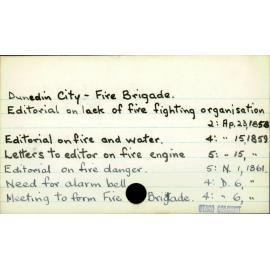 Dunedin City - Fire Brigade.
Editorial on lack of fire fighting organisation
2: Ap. 23, 1858
Editorial on fire and water. 4: " 15, 1859
Letters to editor on fire engine 5: " 15, "
Editorial on fire danger. 5: N. 1, 1861.
Need for alarm bell 4: D. 6, "
Meeting to form Fire Brigade. 4: " 6, "